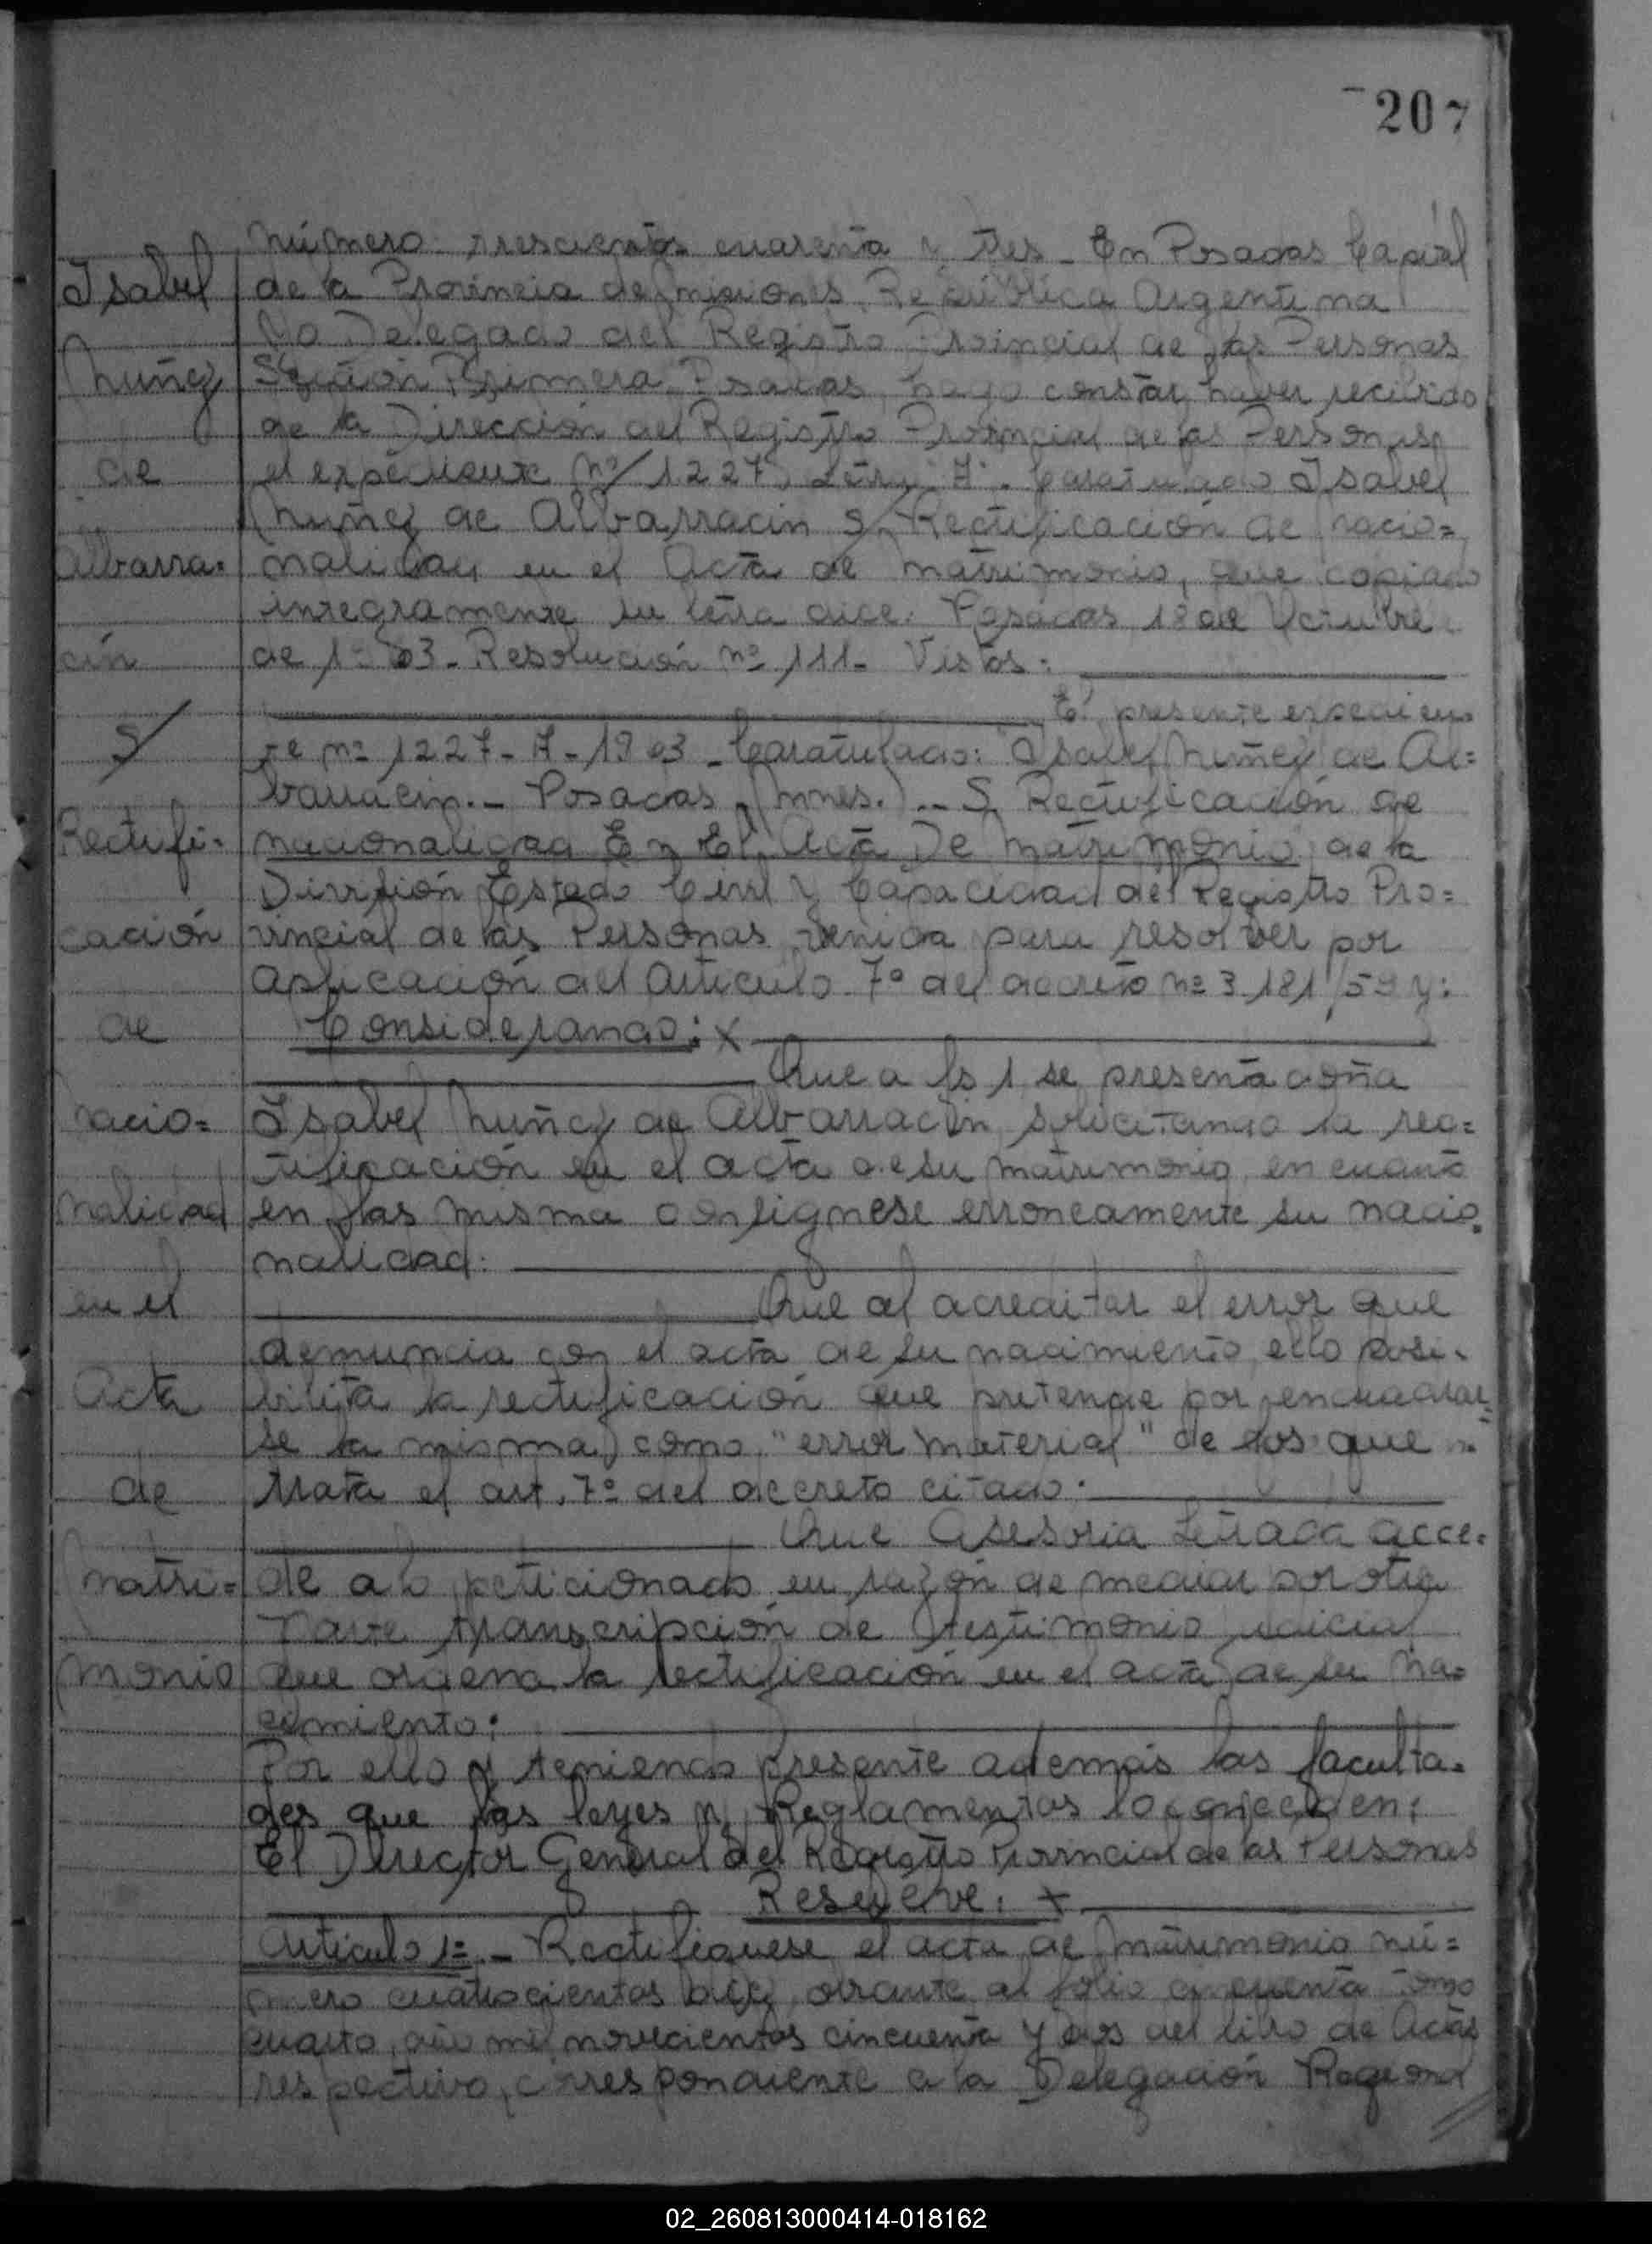 207
Isabel
Nuñez
de
Albarra=
cín
S/
Rectifi=
cación
de
nacio=
nalidad
en el
Acta
de
matri=
monio
Número trescientos cuarenta y tres - En Posadas Capital
de la Provincia de Misiones, República Argentina
Yo Delegado del Registro Provincial de las Personas
Sección Primera Posadas, hago constar haber recibido
de la Dirección del Registro Provincial de las Personas
el expediente Nº/1227, Letra Caratulado Isabel
Nuñez de Albarracin S/ Rectificación de nacio=
nalidad en el Acta de matrimonio, que copiado
integramente su letra dice: Posadas, 18 de Octubre
de Resolución nº 111- Vistos:
El presente expedien
te nº 1227- Caratulado: Isabel Nuñez de Al=
barracin.- Posadas (Mnes.) .- S/ Rectificación de
nacionalidad En El Acta De Matrimonio, de la
División Estado Civil y Capacidad del Registro Pro=
vincial de las Personas, venida para resolver por
aplicación del Artículo 7º del decreto nº 3.181/59 y:
Considerando: x
Que a fs 1 se presenta doña
Isabel Nuñez de Albarracín solicitando la rec=
tificación en el acta de su matrimonio, en cuanto
en las misma consignese erroneamente su nacio=
nalidad:
Que al acreditar el error que
denuncia con el acta de su nacimiento, ello posi=
bilita la rectificación que pretende por encuadrar=
se la misma, como "error material" de los que
trata el art. 7º del decreto citado.
Que Asesoria Letrada acce=
de a lo peticionado en razón de mediar por otra
parte transcripción de testimonio judicial
que ordena la rectificación en el acta de su na=
cimiento:
Por ello y teniendo presente además las faculta=
des que las leyes y Reglamentos lo conceden:
El Director General del Registro Provincial de las Personas
Resuelve: +
Artículo 1º.- Rectifiquese el acta de matrimonio nú=
mero cuatrocientos obrante al folio cincuenta tomo
cuarto, año mil novecientos cincuenta y dos del libro de Actas
respectivo, correspondiente a la Delegación Regional
02_260813000414-018162